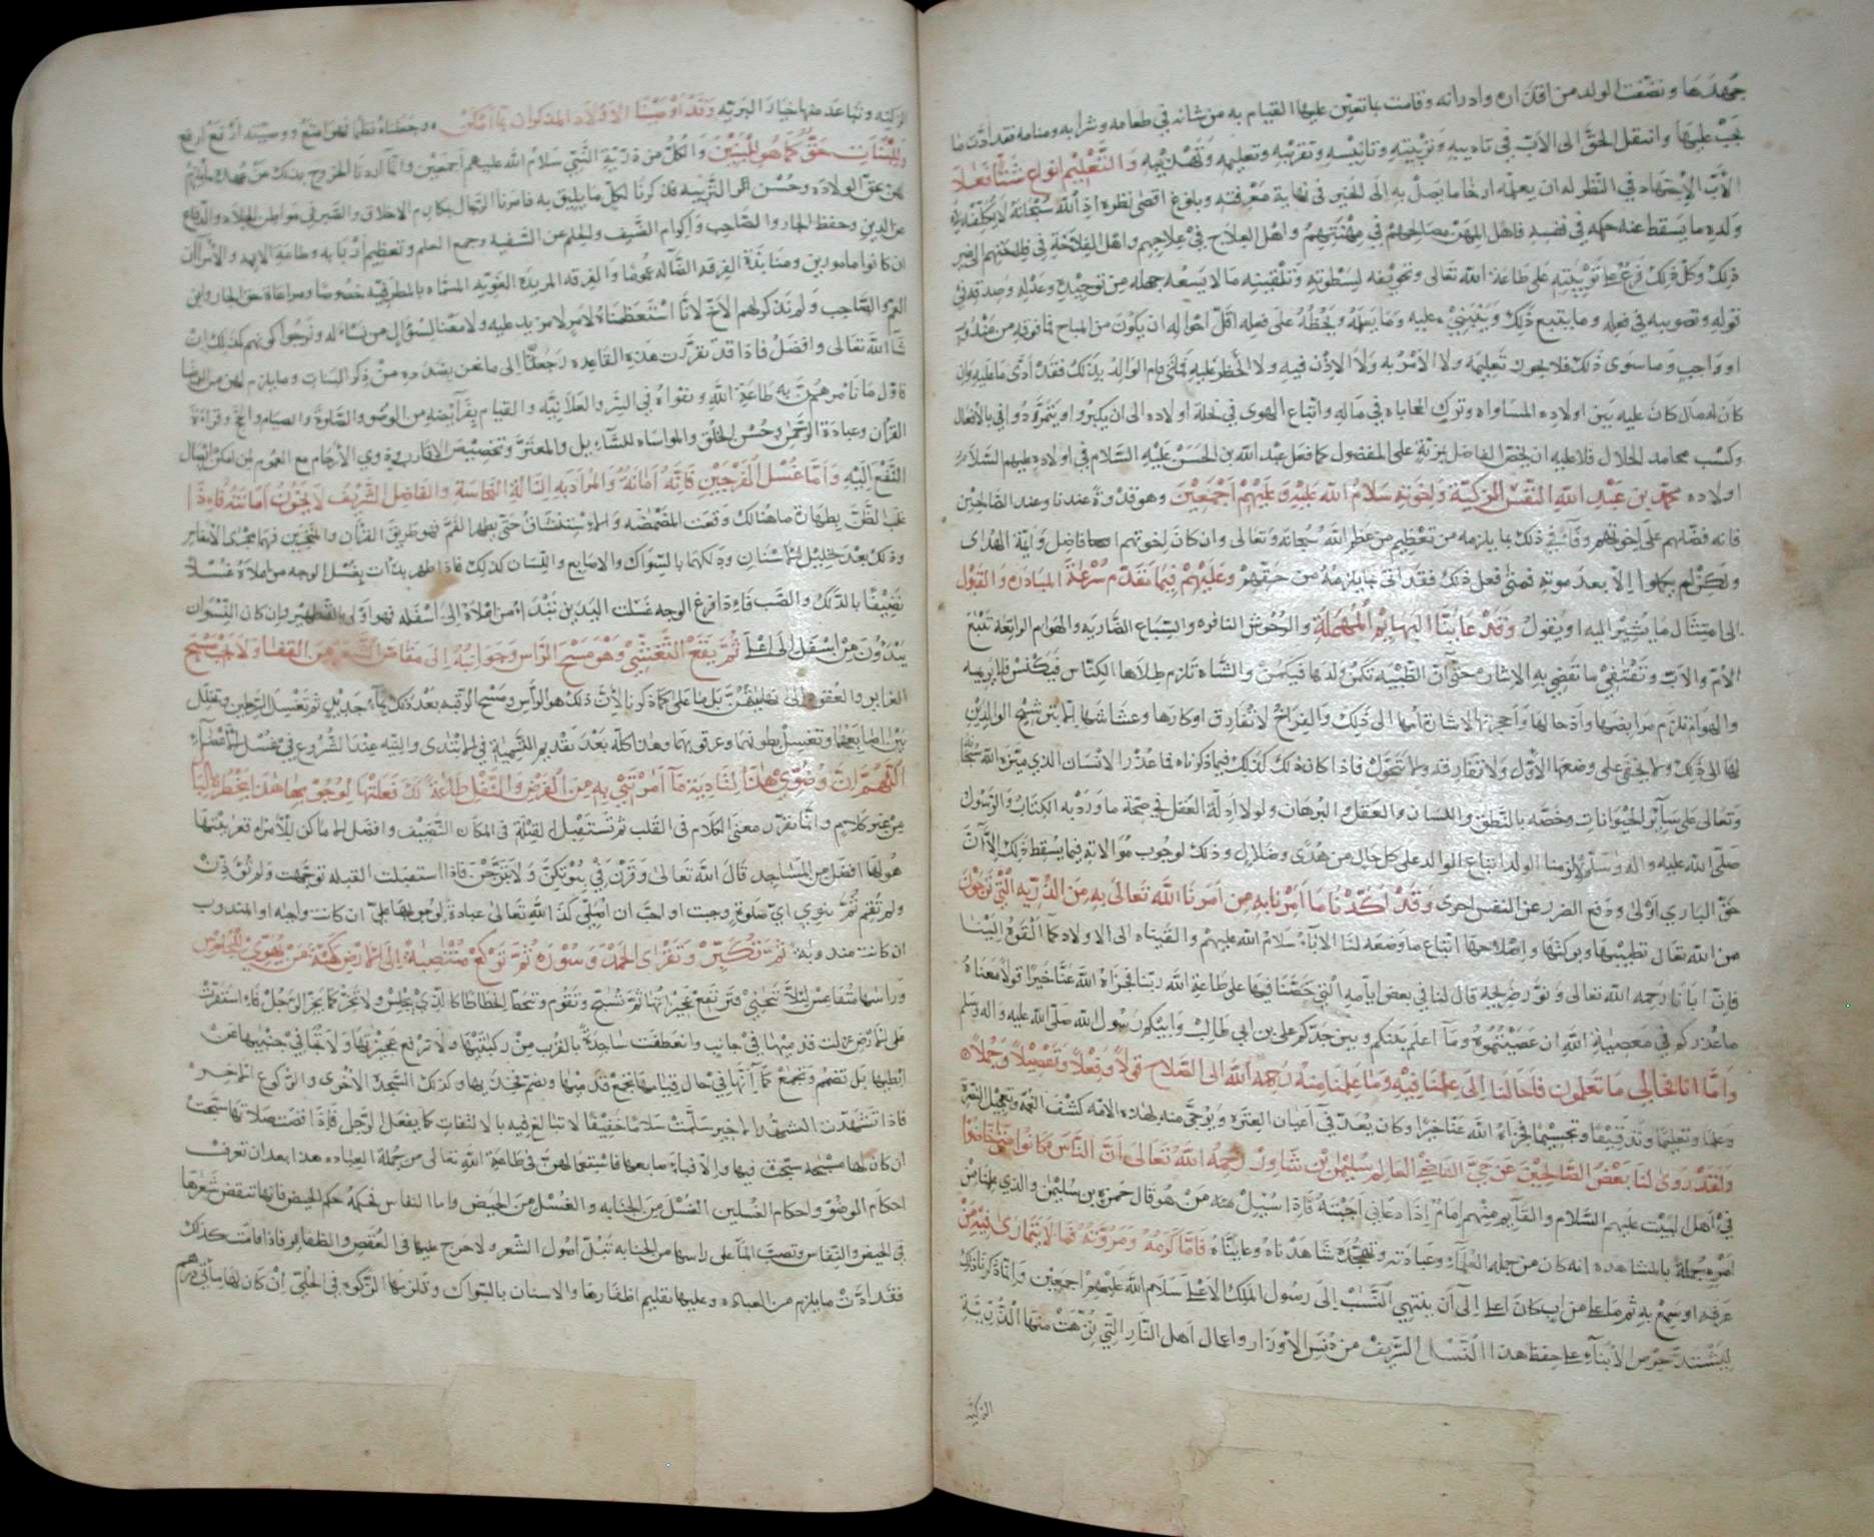 جهدها ونضفت الولد من اقذاره وادرانه وقامت بما تعين عليها القيام به من شانه في طعامه وشرابه ومنامه فقد ادت ما
يجب عليها وانتقل الحق الى الاب في تاديبه وتربيته وتانيسه وتقريبه وتعليمه وتهذيبه والتعليم انواع شتا فعلا
الاب الاجتهاد في النظر لمه ان يعلمه ارخا ما يصل به الى الخير في نهاية معرفته وبلوغ اقصى نظره اذ الله سبحانه لا يكلفه في
ولده ما يسقط عنه حكمه في نفسه فاهل المهن مصالحهم في مهنتهم واهل العلاج في علاجهم واهل الفلاحة في فلاحتهم الى غير
ذلك وكل ذلك فرع على تربيته على طاعة الله تعالى وتخويفه لسطوته وتلقينه ما لا يسعه جهله من توحيده وعدله وصدقه في
قوله وتصويبه في فعله وما يتبع ذلك ويبتني عليه وما يسقطه ويخطه على فعله اقل احواله ان يكون من المباح فما فوقه من مندوب
او واجب وما سوى ذلك فلا يجوز تعليمه ولا الامر به ولا الاذن فيه ولا الحظر عليه فمتى قام الوالد بذلك فقد ادى ما عليه وان
كان له مال كان عليه بين اولاده المساواه وترك المحاباه في ماله واتباع الهوى في نحلة اولاده الى ان يكبروا ويتمردوا في بالافعال
وكسب محامد الحلال فلا عليه ان يخص الفاضل بمزية على المفضول كما فعل عبد الله بن الحسن عليه السلام في اولاده عليهم السلام
اولاده محمد بن عبد الله النفس الزكية ولاخوته سلام الله عليه وعليهم اجمعين وهو قدوة عندنا وعند الصالحين
فانه فضلهم على اخوتهم وفا في ذلك بما يلزمه من تعظيم من عظم الله سبحانه وتعالى وان كان لاخوتهم فاضل وايمة الهدى
ولكن لم يبلغوا الا بعد موته فمتى فعل ذلك فقد اتى بما يلزمه من حقهم وعليهم فيما تقدم سرعة المبادرة والقبول
الى امتثال ما يشير اليه او يقول وقد عاينا البهايم المهملة والوحوش النافره والسباع الضاريه والهوام الراتعه تتبع
الام والاب وتقتفي ما تقضي به الاشارة حتى ان الظبيه تكمن ولدها فيكمن والشاة تلزم طلاها الكناس فيكنس فلا يريمه
والهوام تلزم مرابضها وادحالها واحجرتها لاشارة امها الى ذلك والفراخ لا تفارق اوكارها وعشاشها
لها الى ذلك ولا يختفي على وضعها الاول ولا تفارقه ولا تتحول فاذا كان ذلك كذلك فيما ذكرناه فما عذر الانسان الذي ميزه الله سبحانه
وتعالى على ساير الحيوانات وخصه بالنطق واللسان والعقل والبرهان ولولا ادلة العقل في صحة ما ورد به الكتاب والرسول
صلى الله عليه واله وسلم لالزمنا الولد اتباع الوالد على كل حال من هدى وضلال وذلك لوجوب موالاته فيما يسقط ذلك الا ان
حق الباري اولى ودفع الضرر عن النفس احرى وقد اكدنا ما امرنا به من امرنا الله تعالى به من الذرية التي نرجو
من الله تعالى تطييبها وبركتها واصلاحها اتباع ما وضعه لنا الاباء سلام الله عليهم والقيناه الى الاولاد كما القوه الينا
فان ابانا رحمه الله تعالى ونور ضريحه قال لنا في بعض ايامه التي حضنا فيها على طاعة الله ربنا فجزاه الله عنا خيرا قولا معناه
ما عذركم في معصية الله ان عصيتموه وما اعلم بينكم وبين جدكم علي بن ابي طالب وابيكم رسول الله صلى الله عليه واله وسلم
واما انا فحالي ما تعلمون فاحالنا الى علمنا فيه وما علمنا منه رحمه الله الى الصلاح قولا وفعلا وتفصيلا وجملا
وعلما وتعليما وتدقيقا وتجسيما فجزاه الله عنا خيرا وكان يعد في اعيان العترة ويرجى منه لهذه الامه كشف الغمه وتعجيل النقمة
ولقد روى لنا بعض الصالحين عن حي الشيخ العالم سليمن بن شاور رحمه الله تعالى ان الناس كانوا
في اهل البيت عليهم السلام والقايم منهم امام اذا دعاني اجبته فاذا سيل عنه من هو قال حمزة بن سليمن والذي علمنا من
امره جملة بالمشاهده انه كان من جلة العلماء وعبادته وتهجده شاهدناه وعايناه فاما كرمه ومروته فما لا يتمارى فيه من
عرفه او سمع به ثم ما علا من اب كان اعلا الى ان ينتهي النسب الى رسول الملك الاعلا سلام الله عليهم اجمعين وانما ذكرنا ذلك
ليشتد حرص الابناء على حفظ هذا النسل الشريف من دنس الاوزار واعمال اهل النار التي نزهت منها الذرية
الزكية
الزكيه وتباعد منها خيار البريه وقد اوصينا الاولاد المذكوران بما امكن وجعلناه نظما لهو امتع ووصيته ارفع ارفع
وللبنات حق كما هو للبنين والكل من ذرية النبي سلام الله عليهم اجمعين وانما اردنا الخروج بذلك عن عهدة ما يلزم
لهن بحق الولاده وحسن امر التربيه فذكرنا لكل ما يليق به فامرنا الرجال بمكارم الاخلاق والصبر في مواطن الجلاد والدفاع
عن الدين وحفظ الجار والصاحب واكرام الضيف والحلم عن السفيه وجمع العلم وتعظيم اربابه وطاعة الايمه والامر ان
ان كانوا مامورين ومنابذة الفرقه الضاله عموما والفرقه المريدة الغويه المسماه بالمطرفيه خصوصا ومراعاة حق الجار وابن
العم والصاحب ولم نذكر لهم الاخ لانا استعظمناه لامر لا مزيد عليه ولا معنا لسؤال من نساء له ونرجو كونهم كذلك ان
شا الله تعالى وافضل فاذا قد تقررت هذه القاعده رجعنا الى ما نحن بصدده من ذكر البنات وما يلزم لهن من الوصايا
فاول ما نامرهن به طاعة الله وتقواه في السر والعلانيه والقيام بفرايضه من الوضو والصلوة والصيام والحج وقراءة
القرآن وعبادة الرحمن وحسن الخلق والمواساه للسايل والمعتر وتخصيص الاقارب وذوي الارحام مع العموم لمن امكن ايصال
النفع اليه واما غسل الفرجين فانه امانة والمراد به ازالة النجاسة والفاضل الشريف لا يخون امانته فاذا
غلب الظن بطهارة ما هنالك وقعت المضمضه والاستنشاق حتى يطهر الفم فهو طريق القرآن والمنخرين فهما مجرى الانفاس
وذلك بعد تخليل الاسنان ودلكهما بالسواك والاصابع واللسان كذلك فاذا طهر بدات بغسل الوجه من اعلاه غسلا
نضيفا بالدلك والصب فاذا فرغ الوجه غسلت اليدين تبتدا من اعلاه الى اسفله فهو اولى بالتطهير وان كان النسوان
يبدؤن من اسفل الى اعلا ثم يقع التغشي وهو مسح الراس وجوانبه الى مقاص الشعر من القفا ولا يجب مسح
الغاير والعقوص الى بل ما على كما ذكرنا لان ذلك هو الراس ومسح الرقبه بعد ذلك بماء جديد ثم تغسل الرجلين وتخلل
بين اصابعهما وتغسل بطونهما وعرقوبيهما وهذا كله بعد تقديم التسمية في الابتدى والنيه عند الشروع في غسل الاعضاء
اللهم ان وضوئي هذا لتادية ما امرتني به من الفرض والنفل طاعة لك فعلتها لوجوبها هذا يخطر بالبال
من غير كلام وانما تقرر معنى الكلام في القلب ثم تستقبل القبلة في المكان النضيف وافضل الاماكن للمراة قعر بيتها
هو لها افضل من المساجد قال الله تعالى وقرن في بيوتكن ولا تبرجن فاذا استقبلت القبله توجهت ولم تؤذن
ولم تقم ثم تنوي اي صلوة وجبت او احب ان اصلي كذا لله تعالى عبادة لوجوبها علي ان كانت واجبه او المندوب
ان كانت مندوبة ثم تكبر وتقراى الحمد وسورة ثم تركع منتصبة الى الارض كهيئة من يهوي للجلوس
وراسها متقاعس لئلا تنحني فترتفع عجيزتها ثم تسبح وتقوم وتنحط انحطاطا كالذي يجلس ولا تخر كما يخر الرجل فاذا استقرت
على الارض عزلت قدميها في جانب وانعطفت ساجدة بالقرب من ركبتيها ولا ترفع عجيزتها ولا تجافي جنبيها عن
ابطيها بل تضم وتجمع كما انها في حال قيامها تجمع قدميها وتضم فخذيها وكذلك السجدة الاخرى والركوع الاخر
فاذا تشهدت التشهد الاخير سلمت سلاما خفيفا لا تبالغ فيه بالالتفات كما يفعل الرجل فاذا قضت صلاتها سبحت
ان كان لها مسبحه سبحت فيها والا فباصابعها فاستعمالهن في طاعة الله تعالى من جملة العباده هذا بعد ان تعرف
احكام الوضو واحكام الغسلين الغسل من الجنابه والغسل من الحيض واما النفاس فحكمه حكم الحيض فانها تنقض شعرها
في الحيض والنفاس وتصب الما على راسها من الجنابه تبل اصول الشعر ولا حرج عليها في العقص والظفاير فاذا قامت كذلك
فقد ادت ما يلزم من العباده وعليها تقليم اظفارها والاسنان بالسواك وتلزمها الزكوة في الحلي ان كان لها مائتي درهم